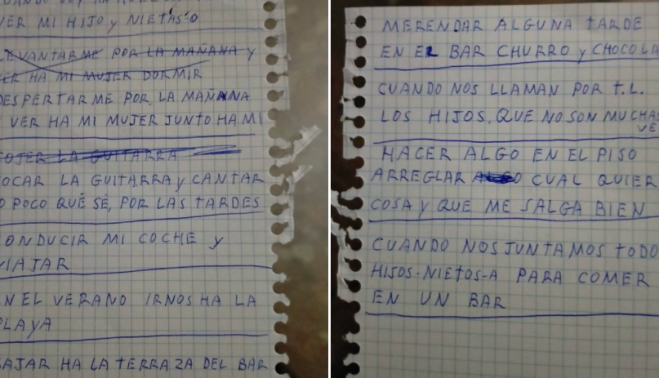 VER MI HIJO y NIETAS-O
LEVANTARME POR LA MAÑANA y
VER HA MI MUJER DORMIR
DESPERTARME POR LA MAÑANA
VER HA MI MUJER JUNTO HA MI
COJER LA GUITARRA
TOCAR LA GUITARRA y CANTAR
O POCO QUE SE, POR LAS TARDES
CONDUCIR MI COCHE y
VIAJAR
EN EL VERANO IRNOS HA LA
PLAYA
BAJAR HA LA TERRAZA DEL BAR
MERENDAR ALGUNA TARDE
EN EL BAR CHURRO y CHOCOLA
CUANDO NOS LLAMAN POR T.L.
LOS HIJOS, QUE NO SON MUCHAS
VE
HACER ALGO EN EL PISO
ARREGLAR ALGO CUAL QUIER
COSA y QUE ME SALGA BIEN
CUANDO NOS JUNTAMOS TODO
HIJOS-NIETOS-A PARA COMER
EN UN BAR